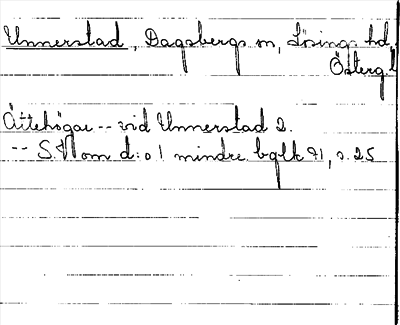 Unnerstad, Dagsbergs sn, Lösings hd,
Österg.l
Ättehögar -- vid Unnerstad 2.
-- S.V om d:o 1 mindre bglk 91, s. 25